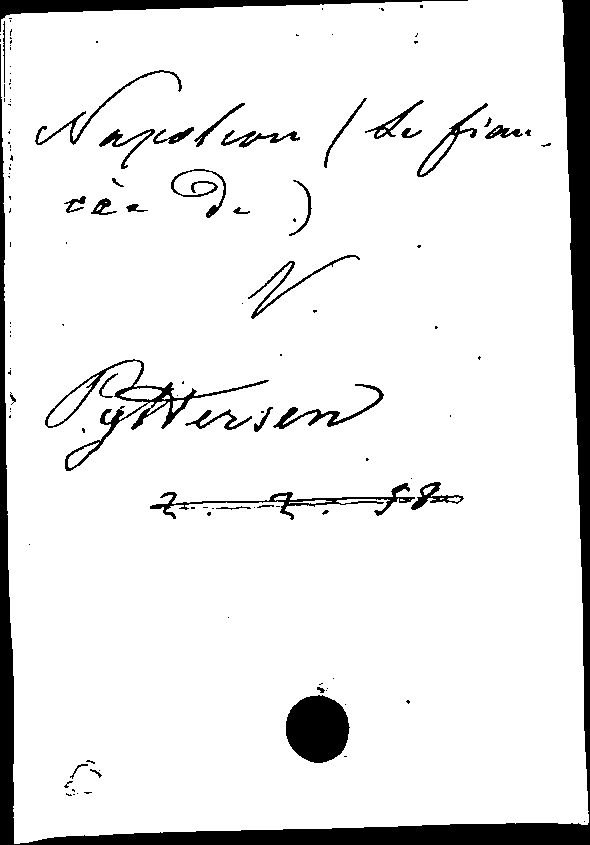 Napoleon (La fian-
cée de)
V.
Pyttersen
2. 2. 58